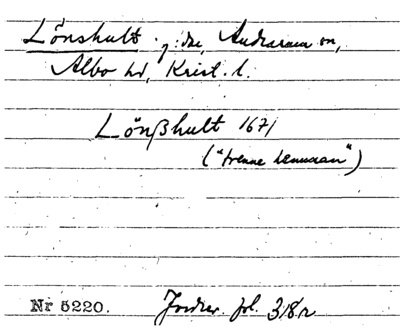 Lönshult, g:de, Andrarum sn,
Albo hd, Krist. l.
Lönßhult 1671
("trenne
Nr 5220. Jordrev. fol. 318r